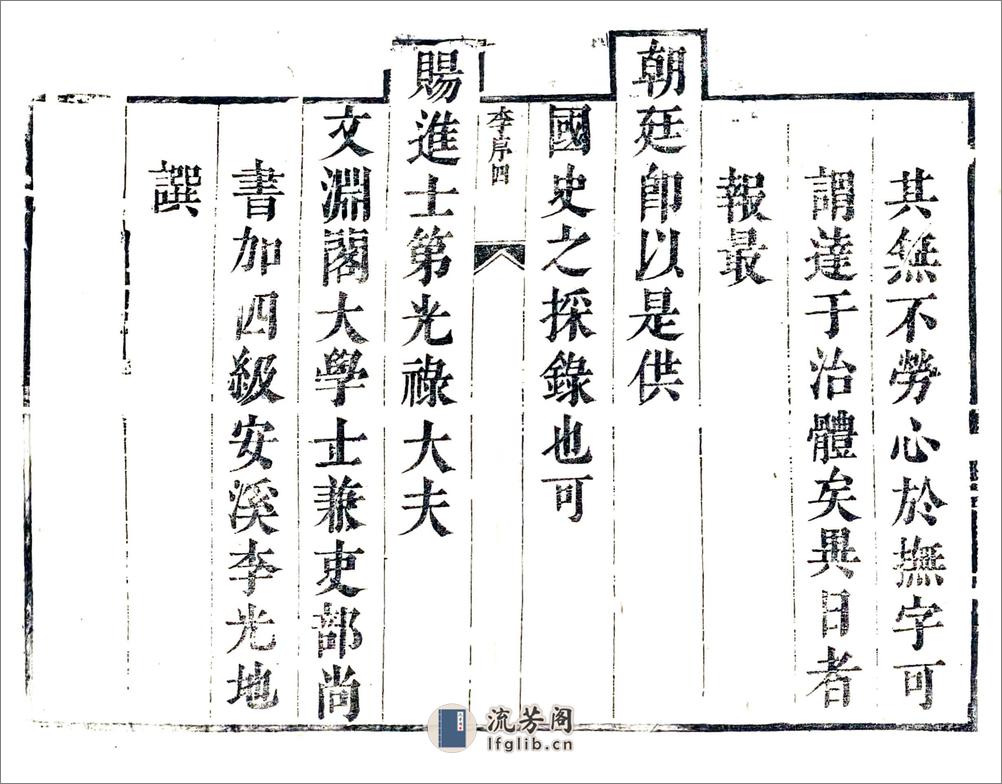 其無不勞心於撫字可
謂達于治體矣異日者
報最
朝廷卽以是供
國史之採錄也可
李序四
賜進士第光祿大夫
文淵閣大學士兼吏部尚
書加四級安溪李光地
譔
流芳阁
lfglib.cn